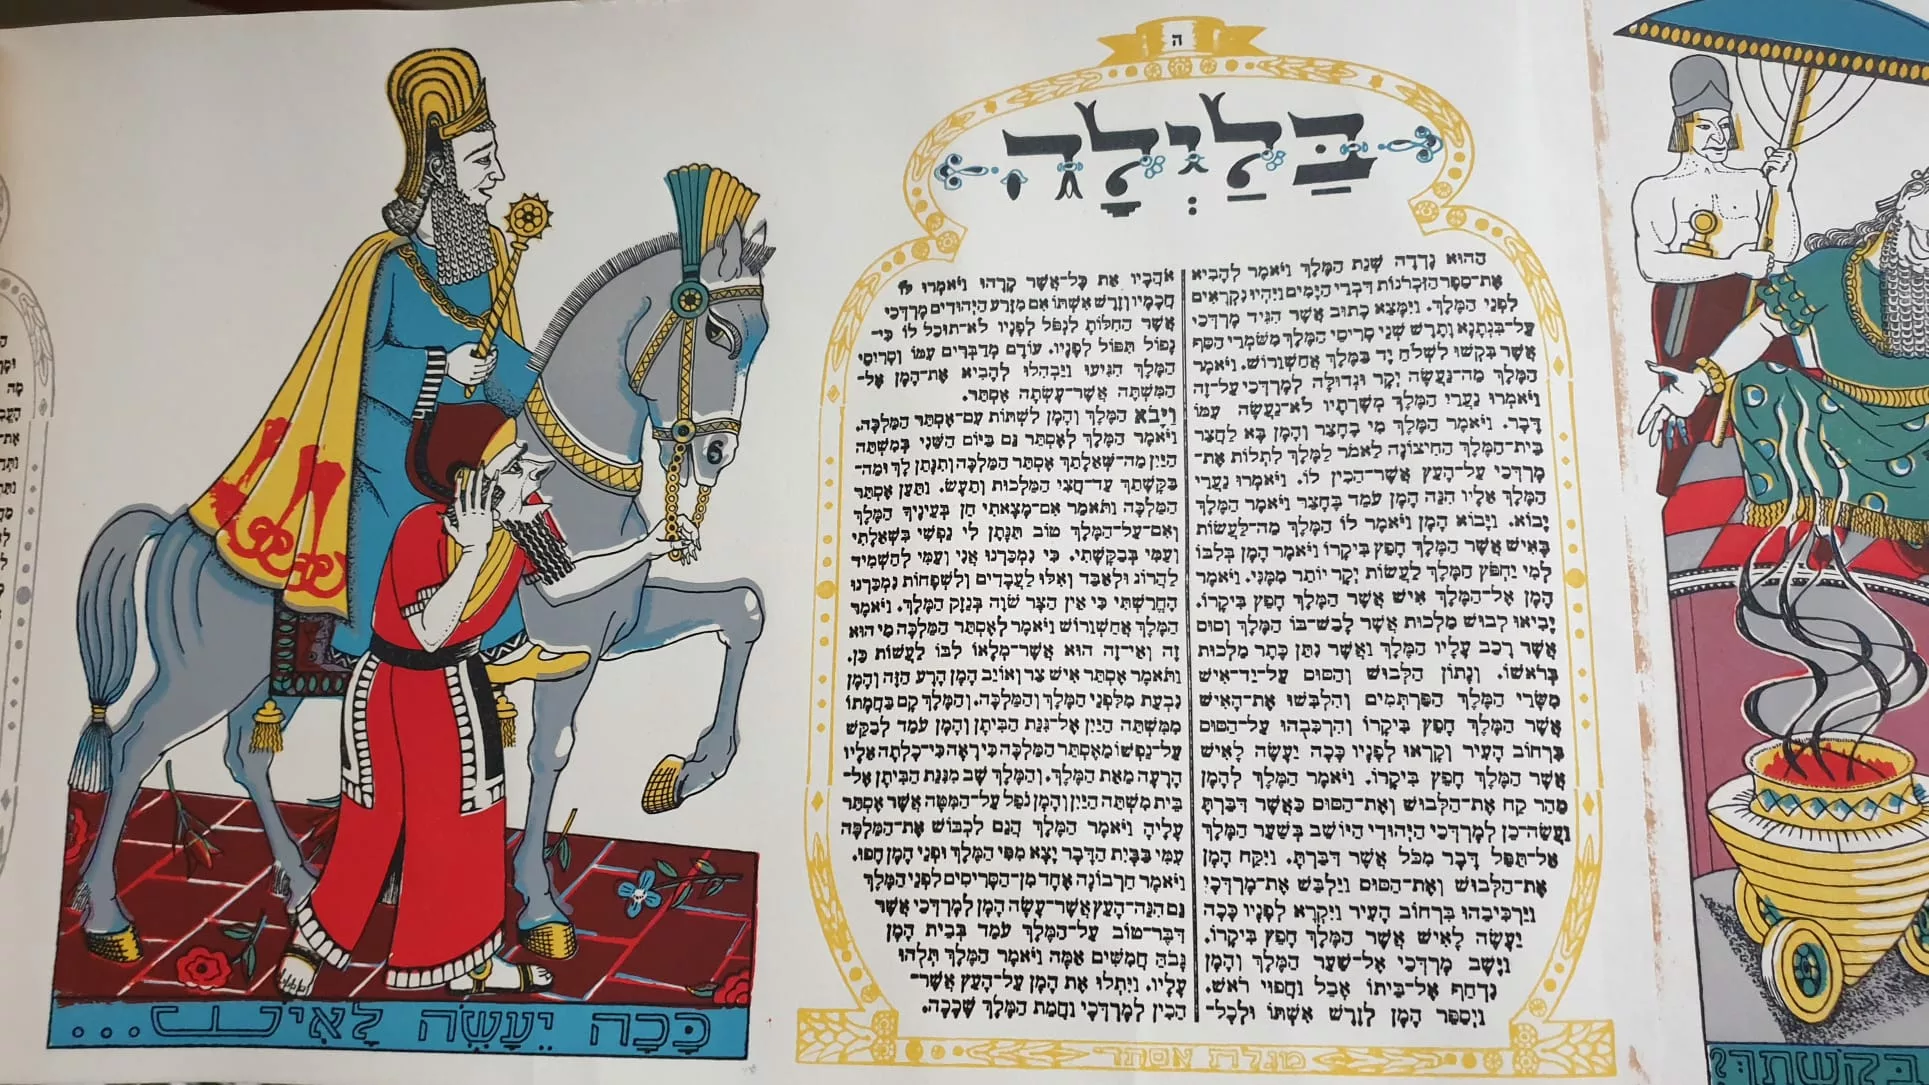 ה
בַּלַּיְלָה
הַהוּא נָדְדָה שְׁנַת הַמֶּלֶךְ וַיֹּאמֶר לְהָבִיא
אֶת־סֵפֶר הַזִּכְרֹנוֹת דִּבְרֵי הַיָּמִים וַיִּהְיוּ נִקְרָאִים
לִפְנֵי הַמֶּלֶךְ. וַיִּמָּצֵא כָתוּב אֲשֶׁר הִגִּיד מָרְדְּכַי
עַל־בִּגְתָנָא וָתֶרֶשׁ שְׁנֵי סָרִיסֵי הַמֶּלֶךְ מִשֹּׁמְרֵי הַסַּף
אֲשֶׁר בִּקְשׁוּ לִשְׁלֹחַ יָד בַּמֶּלֶךְ אֲחַשְׁוֵרוֹשׁ. וַיֹּאמֶר
הַמֶּלֶךְ מַה־נַּעֲשָׂה יְקָר וּגְדוּלָּה לְמָרְדְּכַי עַל־זֶה
וַיֹּאמְרוּ נַעֲרֵי הַמֶּלֶךְ מְשָׁרְתָיו לֹא־נַעֲשָׂה עִמּוֹ
דָּבָר. וַיֹּאמֶר הַמֶּלֶךְ מִי בֶחָצֵר וְהָמָן בָּא לַחֲצַר
בֵּית־הַמֶּלֶךְ הַחִיצוֹנָה לֵאמֹר לַמֶּלֶךְ לִתְלוֹת אֶת־
מָרְדְּכַי עַל־הָעֵץ אֲשֶׁר־הֵכִין לוֹ. וַיֹּאמְרוּ נַעֲרֵי
הַמֶּלֶךְ אֵלָיו הִנֵּה הָמָן עֹמֵד בֶּחָצֵר וַיֹּאמֶר הַמֶּלֶךְ
יָבוֹא. וַיָּבוֹא הָמָן וַיֹּאמֶר לוֹ הַמֶּלֶךְ מַה־לַּעֲשׂוֹת
בָּאִישׁ אֲשֶׁר הַמֶּלֶךְ חָפֵץ בִּיקָרוֹ וַיֹּאמֶר הָמָן בְּלִבּוֹ
לְמִי יַחְפֹּץ הַמֶּלֶךְ לַעֲשׂוֹת יְקָר יוֹתֵר מִמֶּנִּי. וַיֹּאמֶר
הָמָן אֶל־הַמֶּלֶךְ אִישׁ אֲשֶׁר הַמֶּלֶךְ חָפֵץ בִּיקָרוֹ.
יָבִיאוּ לְבוּשׁ מַלְכוּת אֲשֶׁר לָבַשׁ־בּוֹ הַמֶּלֶךְ וְסוּס
אֲשֶׁר רָכַב עָלָיו הַמֶּלֶךְ וַאֲשֶׁר נִתַּן כֶּתֶר מַלְכוּת
בְּרֹאשׁוֹ. וְנָתוֹן הַלְּבוּשׁ וְהַסּוּס עַל־יַד־אִישׁ
מִשָּׂרֵי הַמֶּלֶךְ הַפַּרְתְּמִים וְהִלְבִּשׁוּ אֶת־הָאִישׁ
אֲשֶׁר הַמֶּלֶךְ חָפֵץ בִּיקָרוֹ וְהִרְכִּבֻהוּ עַל־הַסּוּס
בִּרְחוֹב הָעִיר וְקָרְאוּ לְפָנָיו כָּכָה יֵעָשֶׂה לָאִישׁ
אֲשֶׁר הַמֶּלֶךְ חָפֵץ בִּיקָרוֹ. וַיֹּאמֶר הַמֶּלֶךְ לְהָמָן
מַהֵר קַח אֶת־הַלְּבוּשׁ וְאֶת־הַסּוּס כַּאֲשֶׁר דִּבַּרְתָּ
וַעֲשֵׂה־כֵן לְמָרְדְּכַי הַיְּהוּדִי הַיּוֹשֵׁב בְּשַׁעַר הַמֶּלֶךְ
אַל־תַּפֵּל דָּבָר מִכֹּל אֲשֶׁר דִּבַּרְתָּ. וַיִּקַּח הָמָן
אֶת־הַלְּבוּשׁ וְאֶת־הַסּוּס וַיַּלְבֵּשׁ אֶת־מָרְדְּכָי
וַיַּרְכִּיבֵהוּ בִּרְחוֹב הָעִיר וַיִּקְרָא לְפָנָיו כָּכָה
יֵעָשֶׂה לָאִישׁ אֲשֶׁר הַמֶּלֶךְ חָפֵץ בִּיקָרוֹ.
וַיָּשָׁב מָרְדְּכַי אֶל־שַׁעַר הַמֶּלֶךְ וְהָמָן
נִדְחַף אֶל־בֵּיתוֹ אָבֵל וַחֲפוּי רֹאשׁ.
וַיְסַפֵּר הָמָן לְזֶרֶשׁ אִשְׁתּוֹ וּלְכָל־
אֹהֲבָיו אֵת כָּל־אֲשֶׁר קָרָהוּ וַיֹּאמְרוּ לוֹ
חֲכָמָיו וְזֶרֶשׁ אִשְׁתּוֹ אִם מִזֶּרַע הַיְּהוּדִים מָרְדְּכַי
אֲשֶׁר הַחִלּוֹתָ לִנְפֹּל לְפָנָיו לֹא־תוּכַל לוֹ כִּי־
נָפוֹל תִּפּוֹל לְפָנָיו. עוֹדָם מְדַבְּרִים עִמּוֹ וְסָרִיסֵי
הַמֶּלֶךְ הִגִּיעוּ וַיַּבְהִלוּ לְהָבִיא אֶת־הָמָן אֶל־
הַמִּשְׁתֶּה אֲשֶׁר־עָשְׂתָה אֶסְתֵּר.
וַיָּבֹא הַמֶּלֶךְ וְהָמָן לִשְׁתּוֹת עִם־אֶסְתֵּר הַמַּלְכָּה.
וַיֹּאמֶר הַמֶּלֶךְ לְאֶסְתֵּר גַּם בַּיּוֹם הַשֵּׁנִי בְּמִשְׁתֵּה
הַיַּיִן מַה־שְּׁאֵלָתֵךְ אֶסְתֵּר הַמַּלְכָּה וְתִנָּתֵן לָךְ וּמַה־
בַּקָּשָׁתֵךְ עַד־חֲצִי הַמַּלְכוּת וְתֵעָשׂ. וַתַּעַן אֶסְתֵּר
הַמַּלְכָּה וַתֹּאמַר אִם־מָצָאתִי חֵן בְּעֵינֶיךָ הַמֶּלֶךְ
וְאִם־עַל־הַמֶּלֶךְ טוֹב תִּנָּתֶן לִי נַפְשִׁי בִּשְׁאֵלָתִי
וְעַמִּי בְּבַקָּשָׁתִי. כִּי נִמְכַּרְנוּ אֲנִי וְעַמִּי לְהַשְׁמִיד
לַהֲרוֹג וּלְאַבֵּד וְאִלּוּ לַעֲבָדִים וְלִשְׁפָחוֹת נִמְכַּרְנוּ
הֶחֱרַשְׁתִּי כִּי אֵין הַצָּר שֹׁוֶה בְּנֵזֶק הַמֶּלֶךְ. וַיֹּאמֶר
הַמֶּלֶךְ אֲחַשְׁוֵרוֹשׁ וַיֹּאמֶר לְאֶסְתֵּר הַמַּלְכָּה מִי הוּא
זֶה וְאֵי־זֶה הוּא אֲשֶׁר־מְלָאוֹ לִבּוֹ לַעֲשׂוֹת כֵּן.
וַתֹּאמֶר אֶסְתֵּר אִישׁ צַר וְאוֹיֵב הָמָן הָרָע הַזֶּה וְהָמָן
נִבְעַת מִלִּפְנֵי הַמֶּלֶךְ וְהַמַּלְכָּה. וְהַמֶּלֶךְ קָם בַּחֲמָתוֹ
מִמִּשְׁתֵּה הַיַּיִן אֶל־גִּנַּת הַבִּיתָן וְהָמָן עָמַד לְבַקֵּשׁ
עַל־נַפְשׁוֹ מֵאֶסְתֵּר הַמַּלְכָּה כִּי רָאָה כִּי־כָלְתָה אֵלָיו
הָרָעָה מֵאֵת הַמֶּלֶךְ. וְהַמֶּלֶךְ שָׁב מִגִּנַּת הַבִּיתָן אֶל־
בֵּית מִשְׁתֵּה הַיַּיִן וְהָמָן נֹפֵל עַל־הַמִּטָּה אֲשֶׁר אֶסְתֵּר
עָלֶיהָ וַיֹּאמֶר הַמֶּלֶךְ הֲגַם לִכְבּוֹשׁ אֶת־הַמַּלְכָּה
עִמִּי בַּבָּיִת הַדָּבָר יָצָא מִפִּי הַמֶּלֶךְ וּפְנֵי הָמָן חָפוּ.
וַיֹּאמֶר חַרְבוֹנָה אֶחָד מִן־הַסָּרִיסִים לִפְנֵי הַמֶּלֶךְ
גַּם הִנֵּה־הָעֵץ אֲשֶׁר־עָשָׂה הָמָן לְמָרְדְּכַי אֲשֶׁר
דִּבֶּר־טוֹב עַל־הַמֶּלֶךְ עֹמֵד בְּבֵית הָמָן
גָּבֹהַּ חֲמִשִּׁים אַמָּה וַיֹּאמֶר הַמֶּלֶךְ תְּלֻהוּ
עָלָיו. וַיִּתְלוּ אֶת הָמָן עַל־הָעֵץ אֲשֶׁר־
הֵכִין לְמָרְדְּכָי וַחֲמַת הַמֶּלֶךְ שָׁכָכָה.
מגלת אסתר
כָּכָה יֵעָשֶׂה לָאִישׁ...
בַּקָּשָׁתֵךְ?